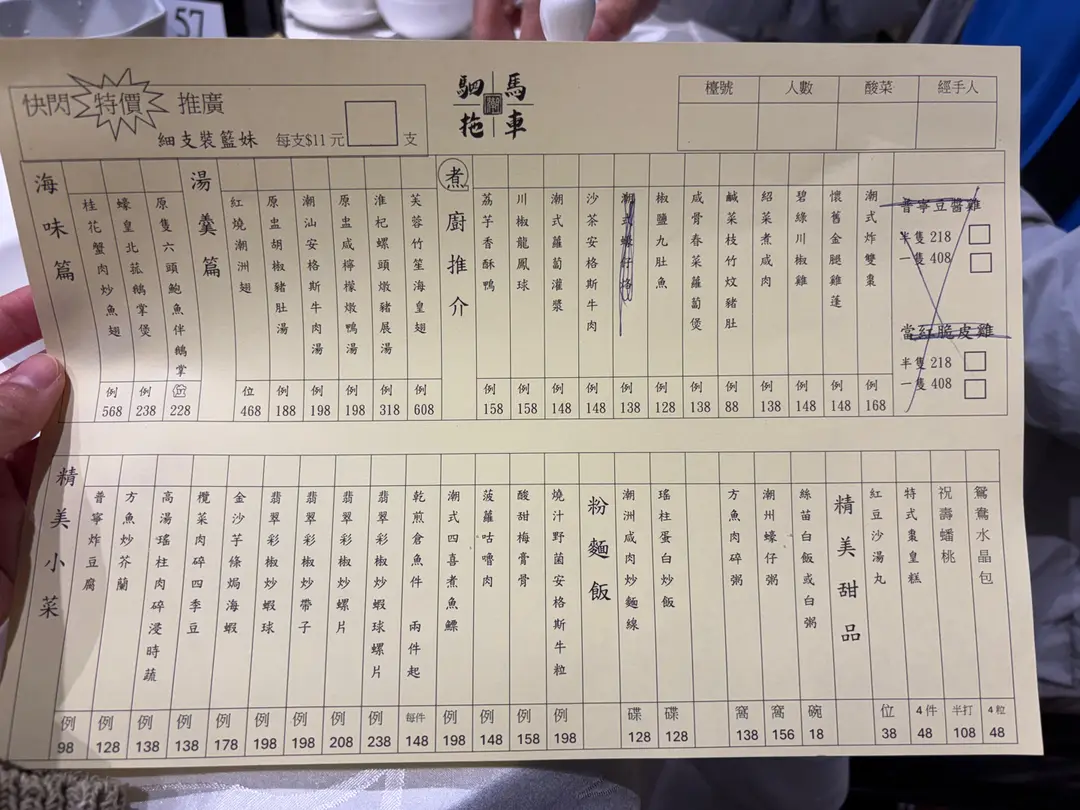 57
快閃特價推廣
細支裝籃妹 每支$11元 支
駟馬拖車
檯號 人數 酸菜 經手人
海味篇
桂花蟹肉炒魚翅 例 568
蠔皇北菇鵝掌煲 例 238
原隻六頭鮑魚伴鵝掌 位 228
湯羹篇
紅燒潮洲翅 位 468
原盅胡椒豬肚湯 例 188
潮汕安格斯牛肉湯 例 198
原盅咸檸檬燉鴨湯 例 198
淮杞螺頭燉豬展湯 例 318
芙蓉竹笙海皇翅 例 608
煮廚推介
荔芋香酥鴨 例 158
川椒龍鳳球 例 158
潮式蘿蔔灌漿 例 148
沙茶安格斯牛肉 例 148
潮式蠔仔烙 例 138
椒鹽九肚魚 例 128
咸骨春菜蘿蔔煲 例 138
鹹菜枝竹炆豬肚 例 88
紹菜煮咸肉 例 138
碧綠川椒雞 例 148
懷舊金腿雞蓮 例 148
潮式炸雙棗 例 168
普寧豆醬雞
半隻 218
一隻 408
當紅脆皮雞
半隻 218
一隻 408
精美小菜
普寧炸豆腐 例 98
方魚炒芥蘭 例 128
高湯瑤柱肉碎浸時蔬 例 138
欖菜肉碎四季豆 例 138
金沙芋條焗海蝦 例 178
翡翠彩椒炒蝦球 例 198
翡翠彩椒炒帶子 例 198
翡翠彩椒炒螺片 例 208
翡翠彩椒炒蝦球螺片 例 238
乾煎倉魚件 兩件起 每件 148
潮式四喜煮魚鰾 例 198
菠蘿咕嚕肉 例 148
酸甜梅膏骨 例 158
燒汁野菌安格斯牛粒 例 198
粉麵飯
潮洲咸肉炒麵線 碟 128
瑤柱蛋白炒飯 碟 128
方魚肉碎粥 窩 138
潮州蠔仔粥 窩 156
絲苗白飯或白粥 碗 18
精美甜品
紅豆沙湯丸 位 38
特式棗皇糕 4件 48
祝壽蟠桃 半打 108
鴛鴦水晶包 4粒 48